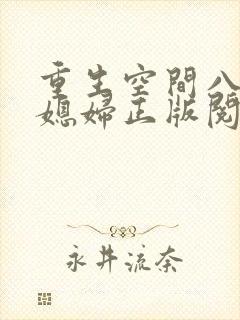 重生空間八
媳婦正版閱
永井流奈